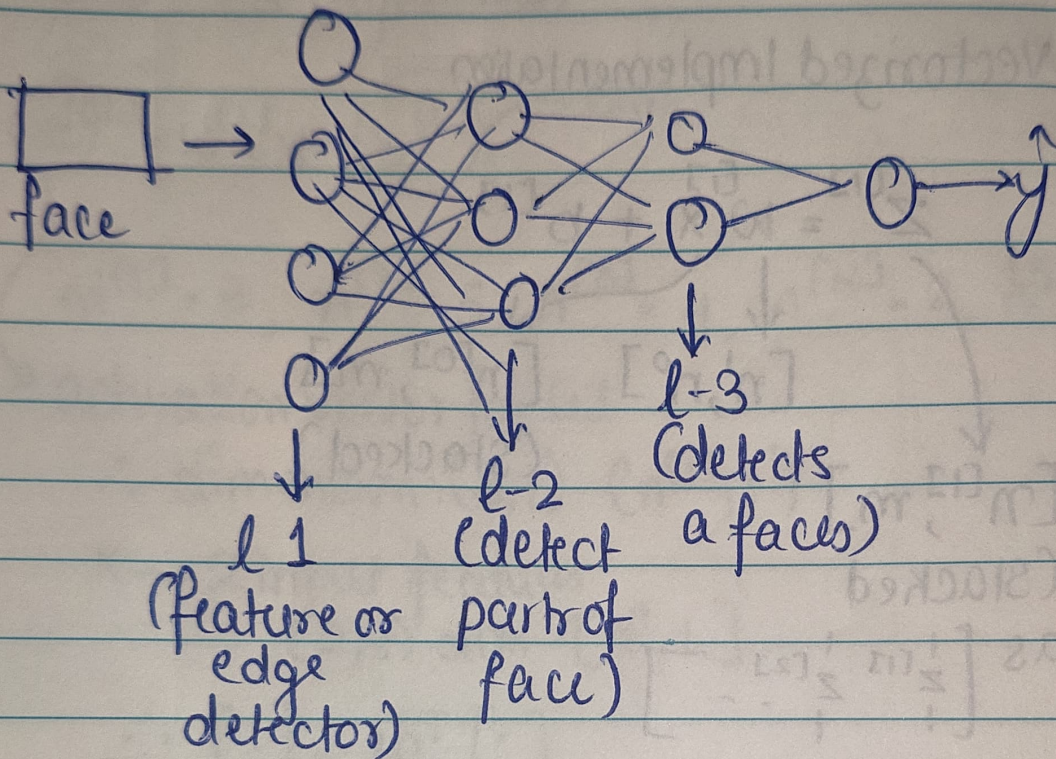 face
ŷ
l 1
(feature or
edge
detector)
l-2
(detect
parts of
face)
l-3
(detects
a faces)